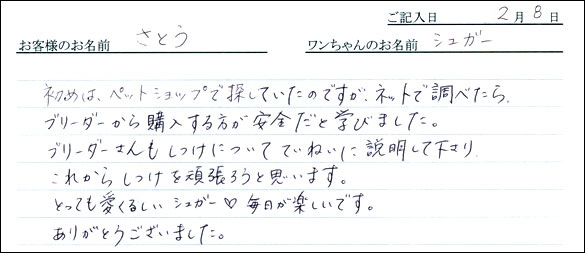 ご記入日 2月8日
お客様のお名前 さとう ワンちゃんのお名前 シュガー
初めは、ペットショップで探していたのですが、ネットで調べたら、
ブリーダーから購入する方が安全だと学びました。
ブリーダーさんもしつけについてていねいに説明して下さり、
これからしつけを頑張ろうと思います。
とっても愛くるしいシュガー♡毎日が楽しいです。
ありがとうございました。